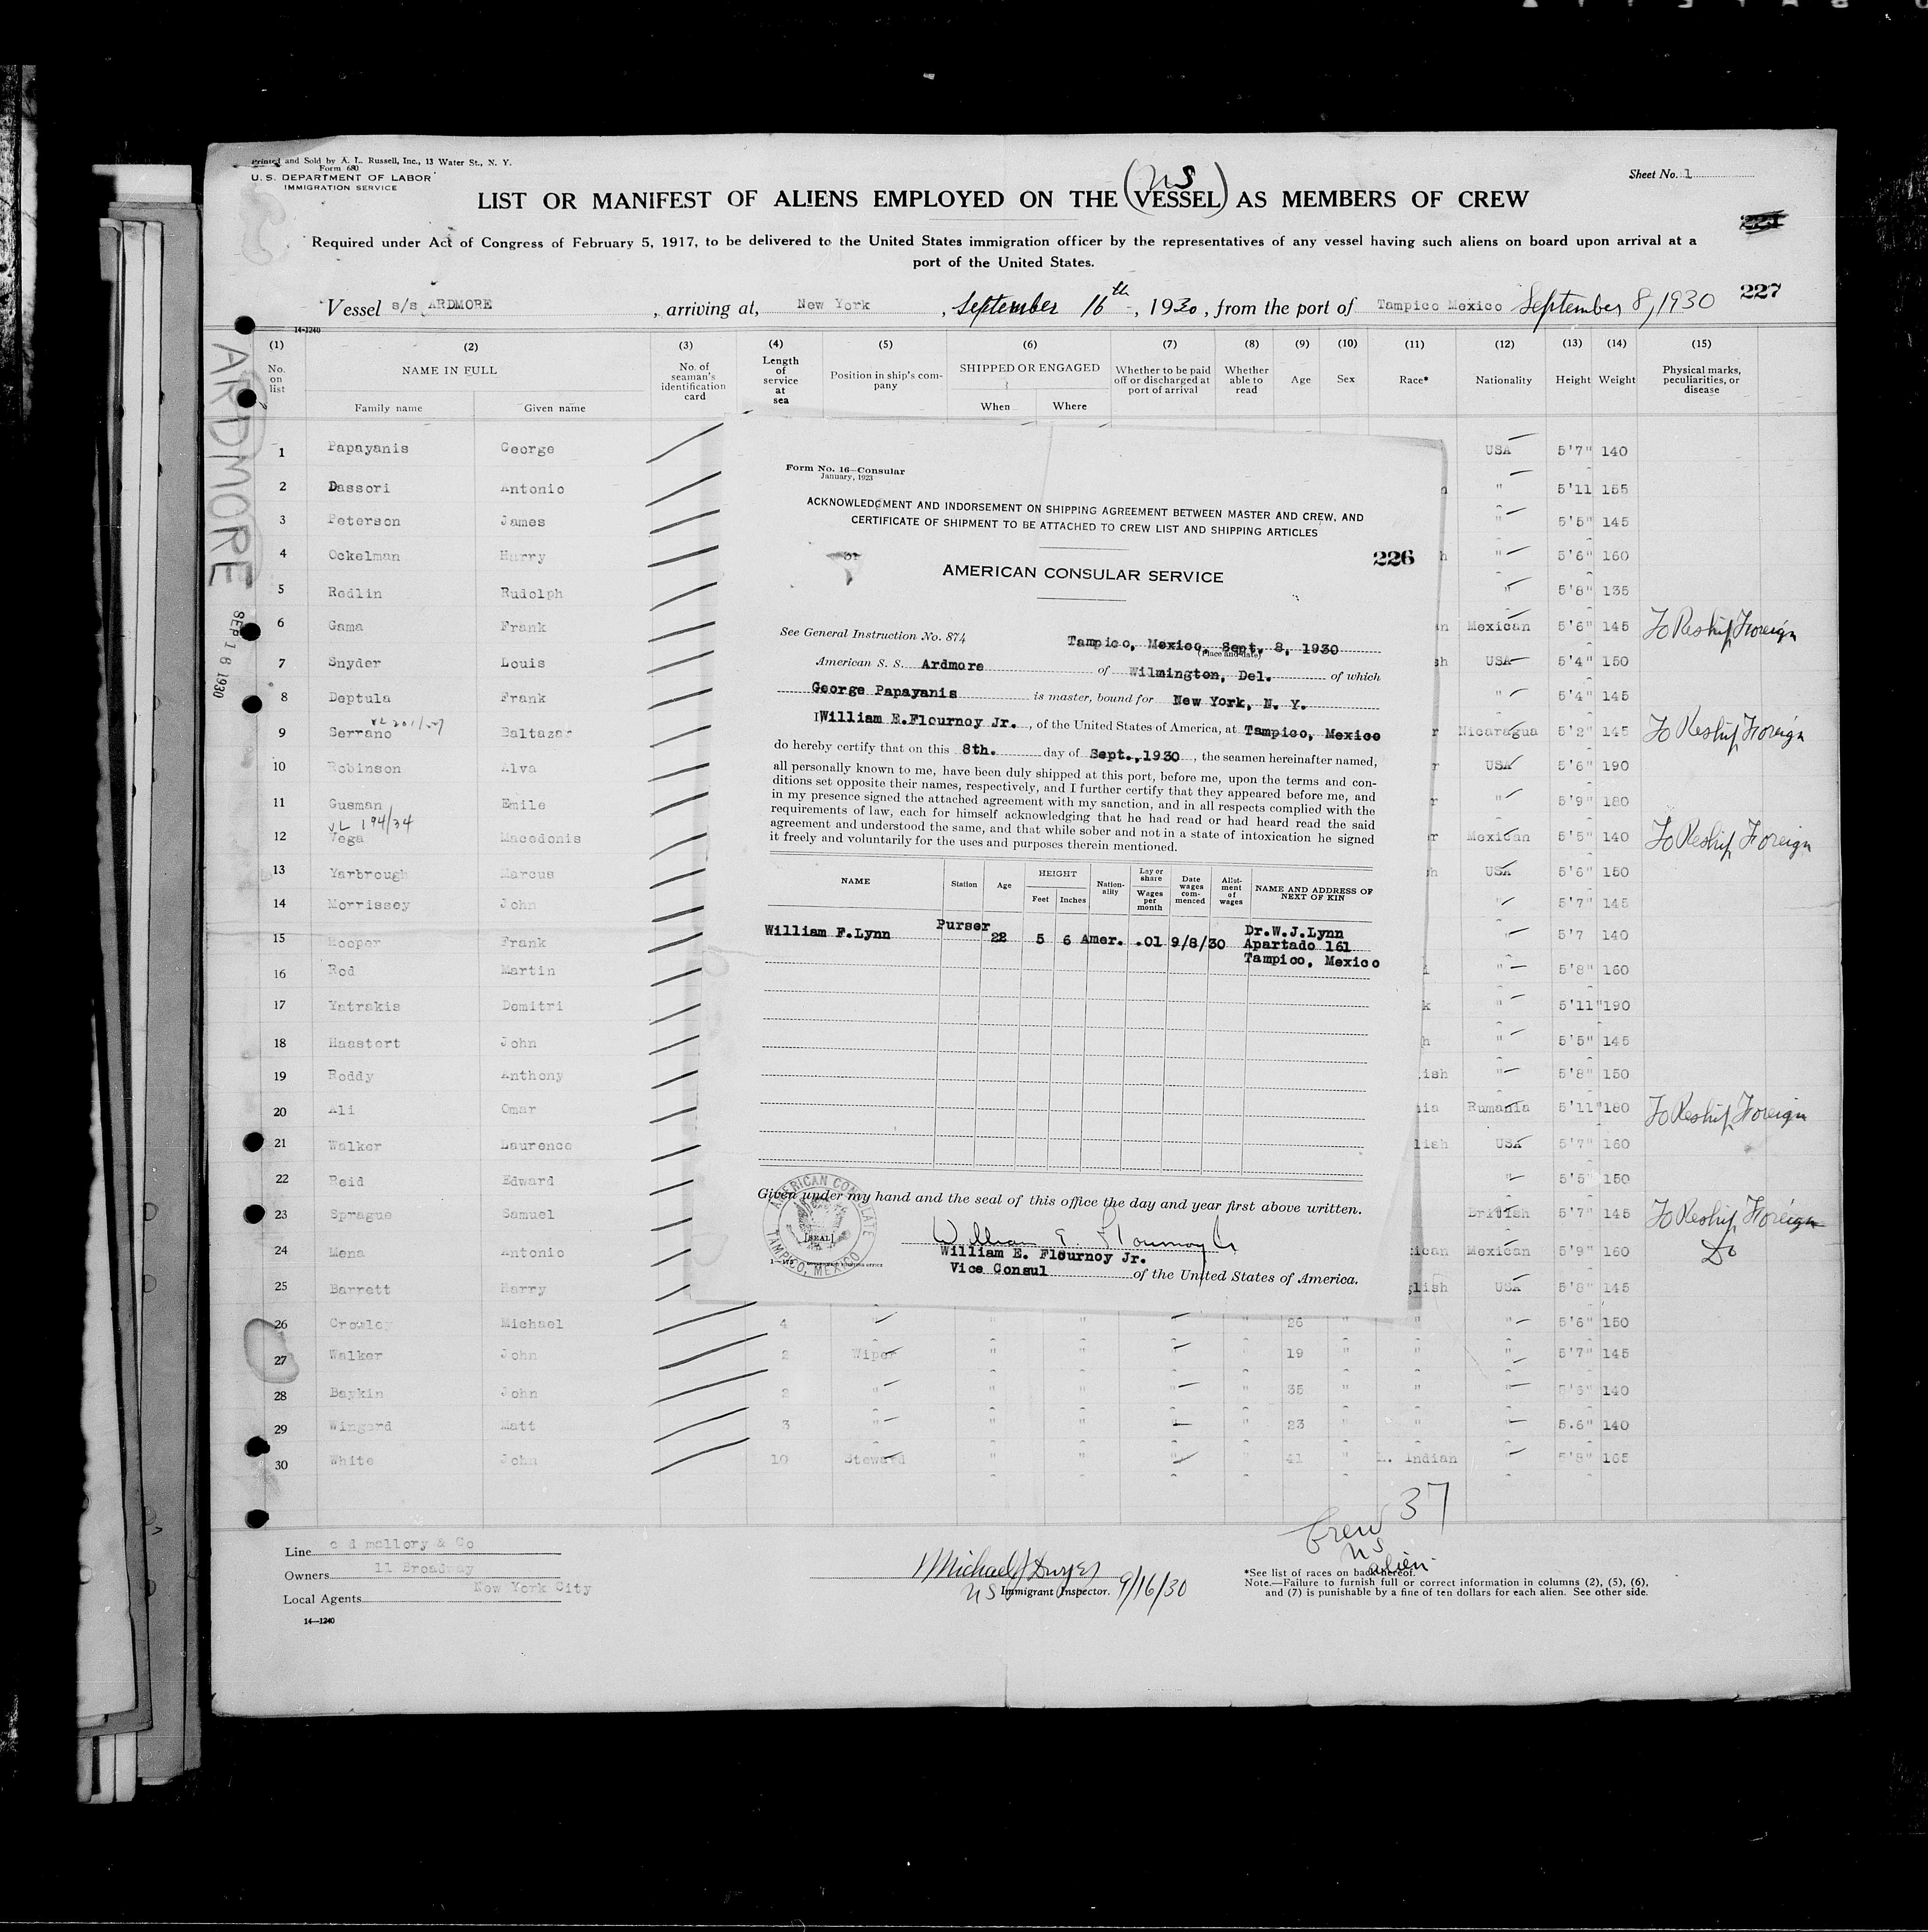 Printed and Sold by A. L. Russell, Inc., 13 Water St., N. Y.
Form 680
U. S. DEPARTMENT OF LABOR
IMMIGRATION SERVICE
Sheet No. 1
US
LIST OR MANIFEST OF ALIENS EMPLOYED ON THE (VESSEL) AS MEMBERS OF CREW
221
Required under Act of Congress of February 5, 1917, to be delivered to the United States immigration officer by the representatives of any vessel having such aliens on board upon arrival at a
port of the United States.
227
Vessel s/s ARDMORE, arriving at, New York, September 16th, 1930, from the port of Tampico Mexico September 8, 1930
14-1240
ARDMORE
SEP 16 1930
(1) (2) (3) (4) (5) (6) (7) (8) (9) (10) (11) (12) (13) (14) (15)
No. on list
NAME IN FULL
Family name
Given name
No. of seaman's identification card
Length of service at sea
Position in ship's company
SHIPPED OR ENGAGED
When
Where
Whether to be paid off or discharged at port of arrival
Whether able to read
Age
Sex
Race*
Nationality
Height
Weight
Physical marks, peculiarities, or disease
1 Papayanis George USA 5'7" 140
2 Dassori Antonio " 5'11 155
3 Peterson James " 5'5" 145
4 Ockelman Harry " 5'6" 160
5 Redlin Rudolph " 5'8" 135
6 Gama Frank Mexican 5'6" 145 To Reship Foreign
7 Snyder Louis USA 5'4" 150
8 Deptula Frank " 5'4" 145
9 Serrano Baltazar Nicaragua 5'2" 145 To Reship Foreign
10 Robinson Alva USA 5'6" 190
11 Gusman Emile " 5'9" 180
VL 194/34
12 Vega Macedonis Mexican 5'5" 140 To Reship Foreign
13 Yarbrough Marcus USA 5'6" 150
14 Morrissey John " 5'7" 145
15 Hooper Frank " 5'7 140
16 Rod Martin " 5'8" 160
17 Yatrakis Demitri " 5'11" 190
18 Haastort John " 5'5" 145
19 Roddy Anthony " 5'8" 150
20 Ali Omar Rumania 5'11" 180 To Reship Foreign
21 Walker Laurence USA 5'7" 160
22 Reid Edward " 5'5" 150
23 Sprague Samuel British 5'7" 145 To Reship Foreign
24 Mena Antonio Mexican 5'9" 160 Do
25 Barrett Harry USA 5'8" 145
26 Crowley Michael 4 " " " " " 26 " " " 5'6" 150
27 Walker John 2 Wiper " " " " 19 " " " 5'7" 145
28 Baykin John 2 " " " " " 35 " " " 5'6" 140
29 Wingard Matt 3 " " " " 23 " " " 5.6" 140
30 White John 10 Steward " " " " 41 " Indian " 5'8" 165
Form No. 16—Consular
January, 1923
ACKNOWLEDGMENT AND INDORSEMENT ON SHIPPING AGREEMENT BETWEEN MASTER AND CREW, AND
CERTIFICATE OF SHIPMENT TO BE ATTACHED TO CREW LIST AND SHIPPING ARTICLES
226
AMERICAN CONSULAR SERVICE
See General Instruction No. 874
Tampico, Mexico, Sept, 8, 1930
(Place and date)
American S. S. Ardmore of Wilmington, Del. of which
George Papayanis is master, bound for New York, N. Y.
I William E.Flournoy Jr., of the United States of America, at Tampico, Mexico
do hereby certify that on this 8th. day of Sept.,1930, the seamen hereinafter named,
all personally known to me, have been duly shipped at this port, before me, upon the terms and con-
ditions set opposite their names, respectively, and I further certify that they appeared before me, and
in my presence signed the attached agreement with my sanction, and in all respects complied with the
requirements of law, each for himself acknowledging that he had read or had heard read the said
agreement and understood the same, and that while sober and not in a state of intoxication he signed
it freely and voluntarily for the uses and purposes therein mentioned.
NAME
Station
Age
HEIGHT
Feet
Inches
Nation-ality
Lay or share
Wages per month
Date wages com-menced
Allot-ment of wages
NAME AND ADDRESS OF NEXT OF KIN
William F.Lynn Purser 22 5 6 Amer. .01 9/8/30 Dr.W.J.Lynn
Apartado 161
Tampico, Mexico
Given under my hand and the seal of this office the day and year first above written.
AMERICAN CONSULATE
TAMPICO, MEXICO
[SEAL]
William E. Flournoy Jr
William E. Flournoy Jr.
Vice Consul of the United States of America.
Crew 37
US
alien
Line c d mallory & Co
Owners 11 Broadway
Local Agents New York City
14—1240
Michael J Dwyer
US Immigrant Inspector. 9/16/30
*See list of races on back hereof.
Note.—Failure to furnish full or correct information in columns (2), (5), (6),
and (7) is punishable by a fine of ten dollars for each alien. See other side.